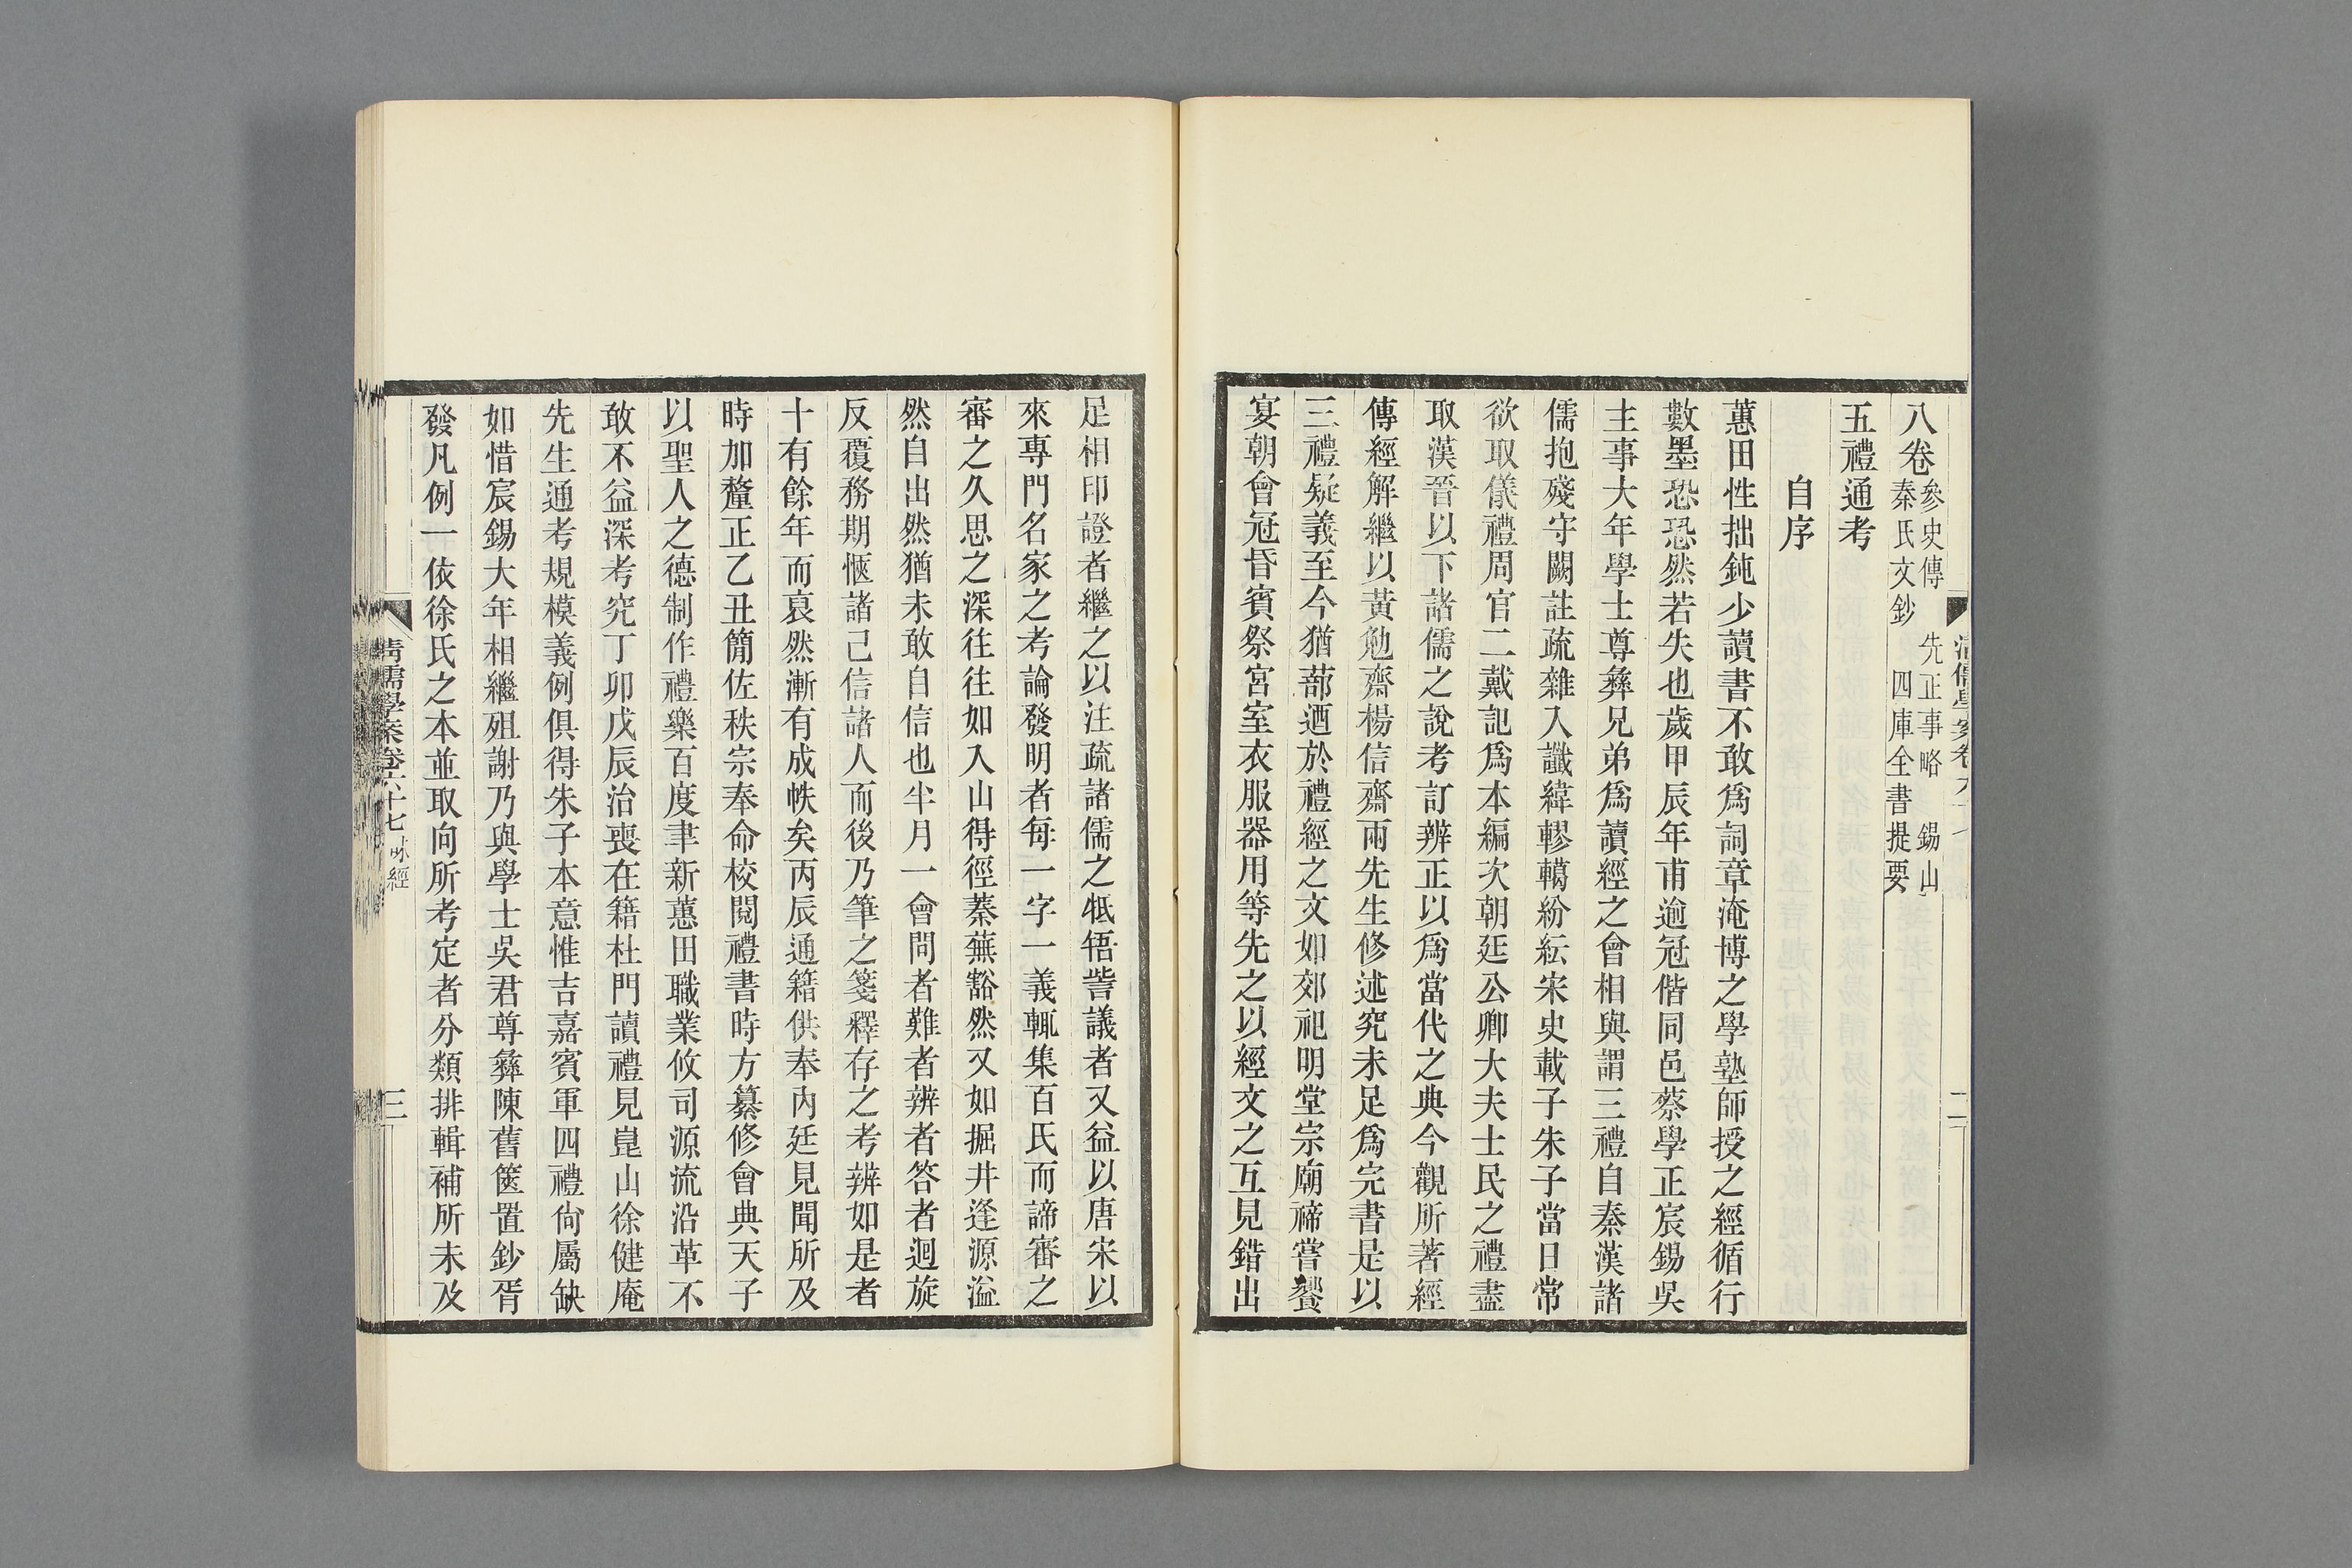 八卷參史傳　先正事略　錫山
秦氏文鈔　四庫全書提要
五禮通考
自序
蕙田性拙鈍少讀書不敢爲詞章淹博之學塾師授之經循行
數墨恐恐然若失也歲甲辰年甫逾冠偕同邑蔡學正宸錫吳
主事大年學士尊彝兄弟爲讀經之會相與謂三禮自秦漢諸
儒抱殘守闕註疏雜入讖緯轇轕紛紜宋史載子朱子當日常
欲取儀禮周官二戴記爲本編次朝廷公卿大夫士民之禮盡
取漢晉以下諸儒之說考訂辨正以爲當代之典今觀所著經
傳經解繼以黃勉齋楊信齋兩先生修述究未足爲完書是以
三禮疑義至今猶蔀迺於禮經之文如郊祀明堂宗廟禘嘗饗
宴朝會冠昏賓祭宮室衣服器用等先之以經文之互見錯出
足相印證者繼之以注疏諸儒之牴牾訾議者又益以唐宋以
來專門名家之考論發明者每一字一義輒集百氏而諦審之
審之久思之深往往如入山得徑蓁蕪豁然又如掘井逢源溢
然自出然猶未敢自信也半月一會問者難者辨者答者迴旋
反覆務期愜諸己信諸人而後乃筆之箋釋存之考辨如是者
十有餘年而裒然漸有成帙矣丙辰通籍供奉內廷見聞所及
時加釐正乙丑簡佐秩宗奉命校閱禮書時方纂修會典天子
以聖人之德制作禮樂百度聿新蕙田職業攸司源流沿革不
敢不益深考究丁卯戊辰治喪在籍杜門讀禮見崑山徐健庵
先生通考規模義例俱得朱子本意惟吉嘉賓軍四禮尙屬缺
如惜宸錫大年相繼殂謝乃與學士吳君尊彝陳舊篋置鈔胥
發凡例一依徐氏之本並取向所考定者分類排輯補所未及
清儒學案卷六十七　味經　三